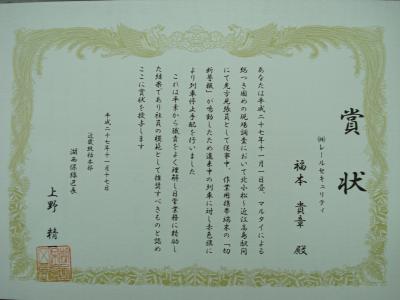 賞状
㈱レールセキュリティ
福本貴章殿
あなたは平成二十七年十一月一日昼、マルタイによる
総つき固めの現場調査において北小松~近江高島駅間
にて先方見張員として従事中、作業用携帯端末の「切
断警報」が鳴動したため進来中の列車に対し赤色旗に
より列車停止手配を行いました
これは平素から職責をよく理解し日常業務に精励し
た結果であり社員の模範として推奨すべきものと認め
ここに賞状を授与します
平成二十七年十一月十七日
近畿統括本部
湖西保線区長
上野精一